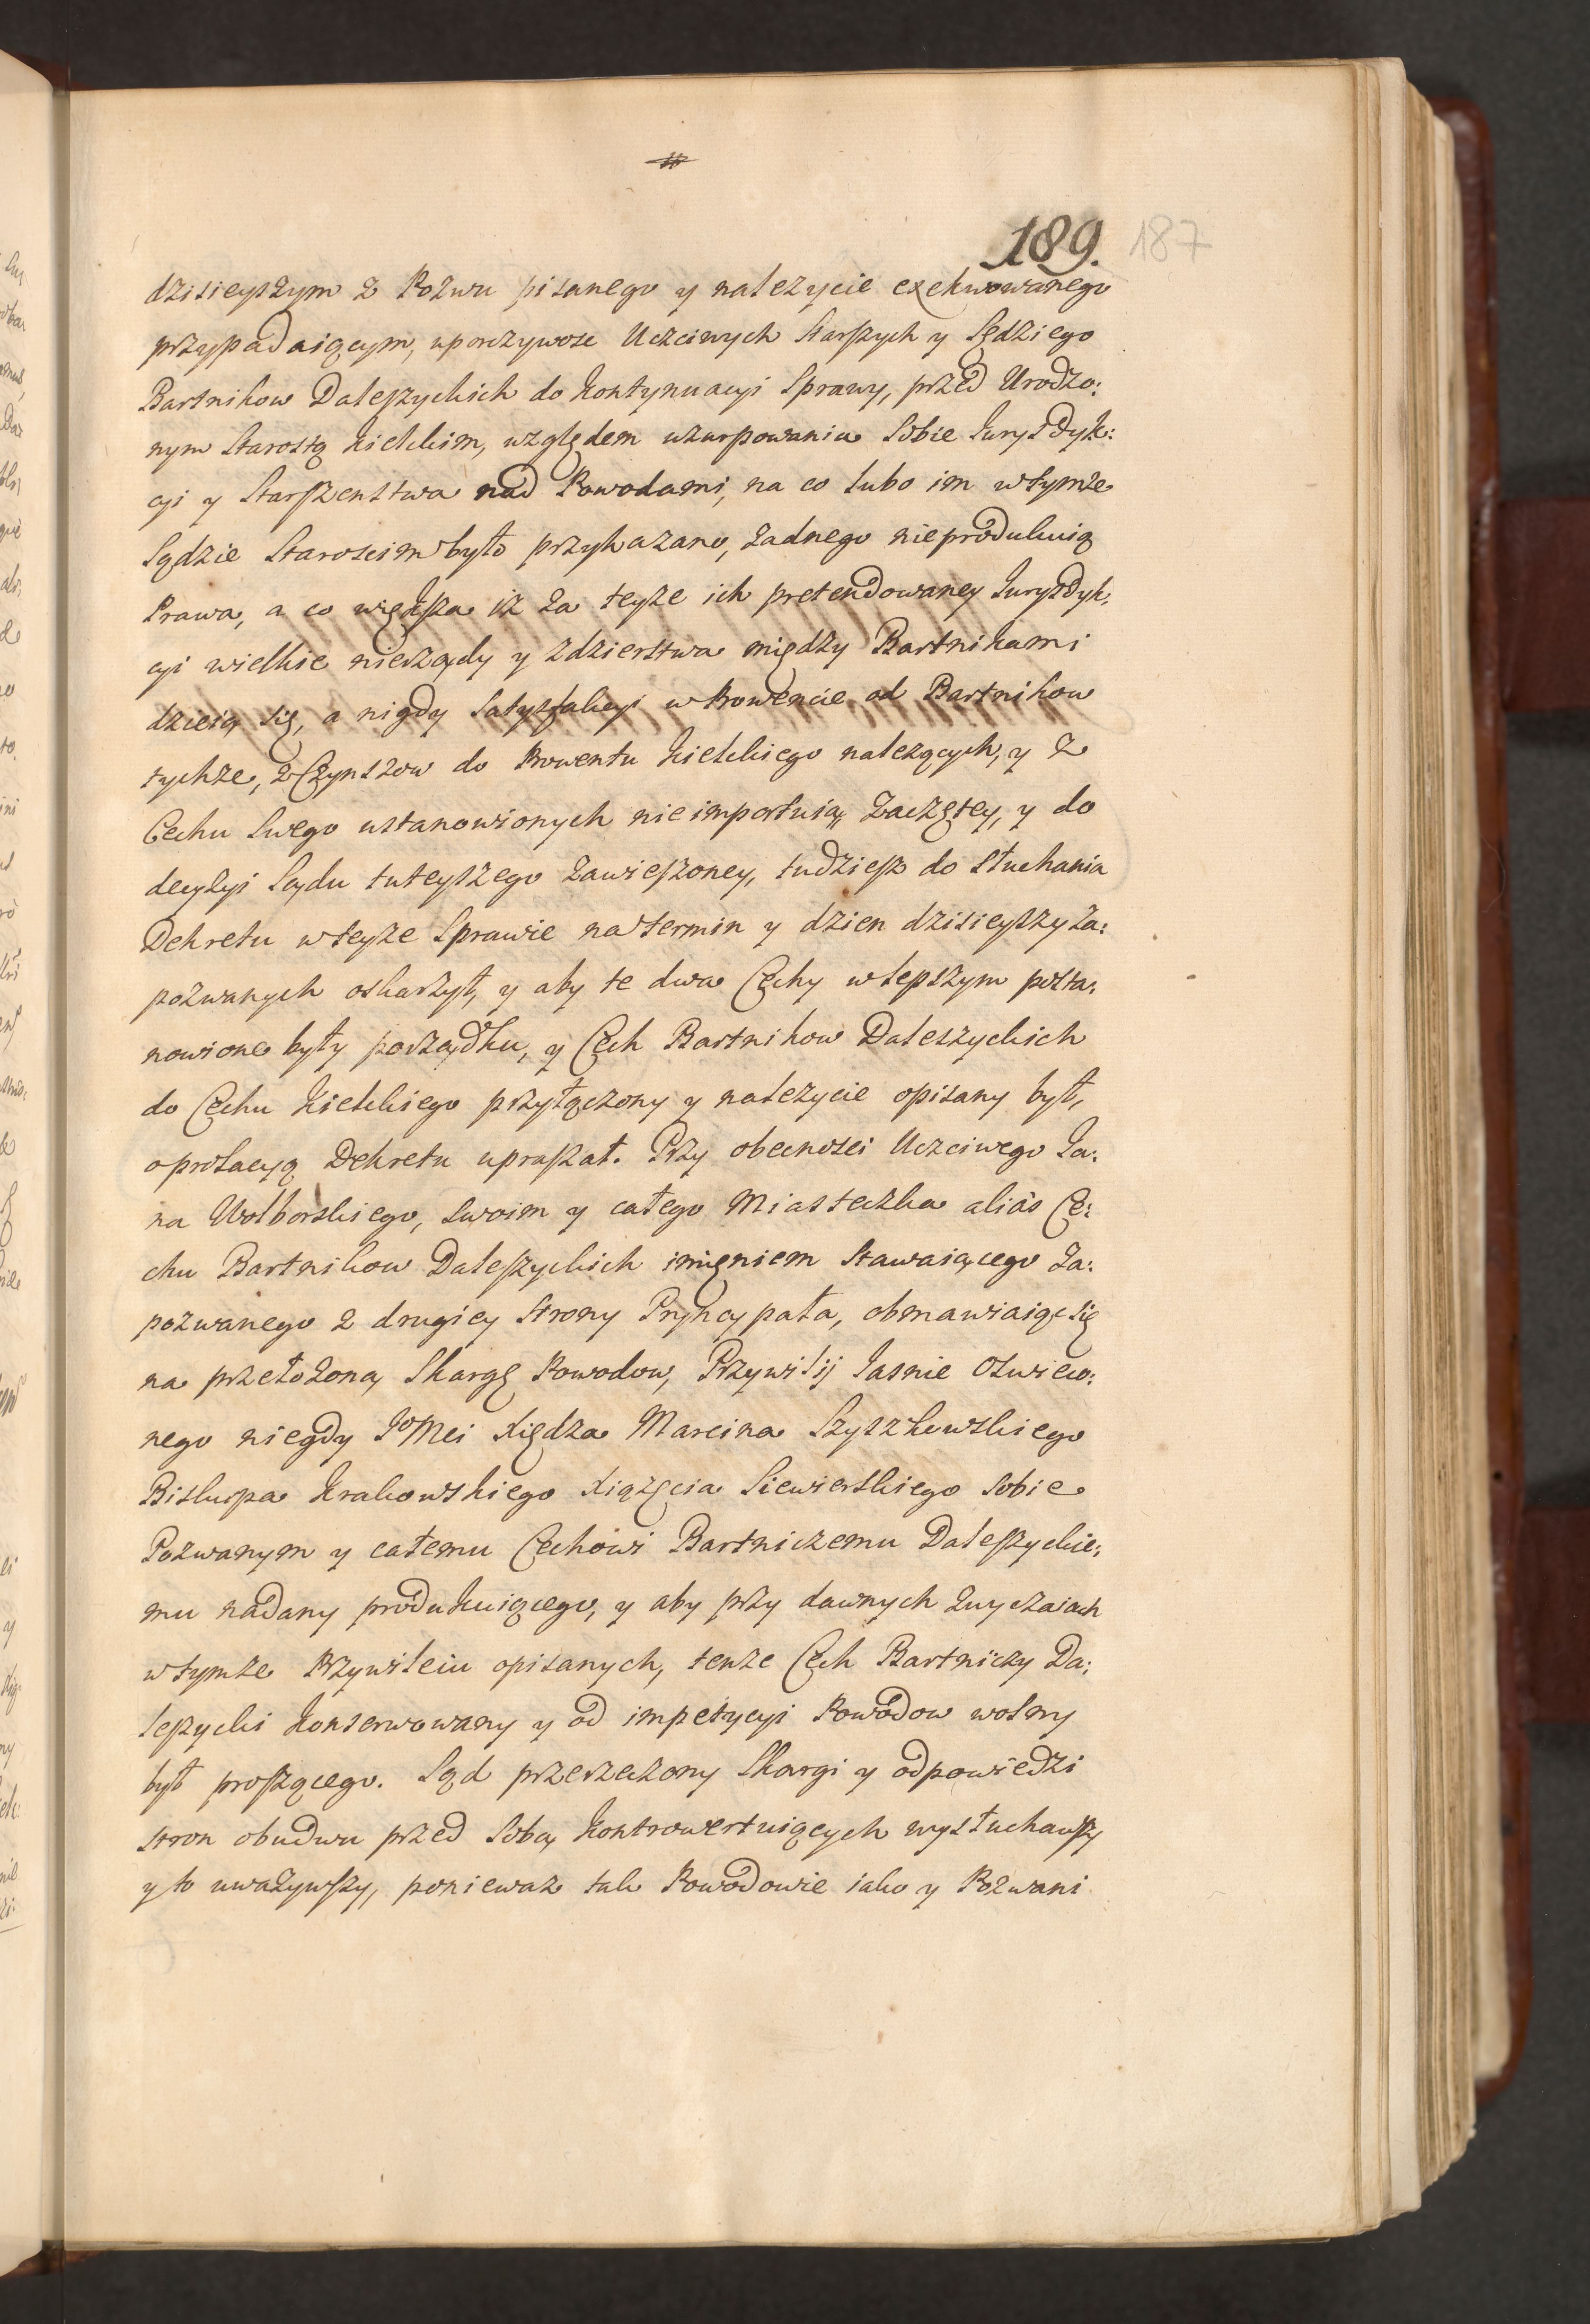 189. 187
dzisieyszym z Pozwu pisanego y nalezycie exekwowanego
przypadaiącym, uporczywosc Uczciwych Starszych y Sędziego
Bartnikow Daleszyckich do kontynuacyi Sprawy, przed Urodzo:
nym Starostą Kielckim, względem uzurpowania Sobie Juryzdyk:
cyi y Starszenstwa nad Powodami, na co lubo im w tymze
Sądzie Staroscim było przykazano, zadnego nieprodukuią
Prawa, a co większa iz za teyze ich pretendowaney Juryzdyk:
cyi wielkie nierządy y zdzierstwa między Bartnikami
dzieią się, a nigdy Satysfakcyi w Prowencie od Bartnikow
tychze, z Czynszow do Prowentu Kielckiego nalezących, y z
Cechu Swego ustanowionych nie importuią, zaczętey, y do
decyzyi Sądu tuteyszego zawieszoney, tudziesz do słuchania
Dekretu w teyze Sprawie na termin y dzien dzisieyszy za:
pozwanych oskarzył, y aby te dwa Cechy w lepszym posta:
nowione były porządku, y Cech Bartnikow Daleszyckich
do Cechu Kielckiego przyłączony y nalezycie opisany był,
o prolacyą Dekretu upraszał. Przy obecnosci Uczciwego Ja:
na Wolborskiego, swoim y całego Miasteczka aliàs Ce:
chu Bartnikow Daleszyckich imięniem Stawaiącego Za:
pozwanego z drugiey Strony Pryncypała, obmawiaiąc się
na przełozoną Skargę Powodow, Przywilij Jasnie Oswieco:
nego niegdy JoMci Xiędza Marcina Szyszkowskiego
Biskupa Krakowskiego Xiązęcia Siewierskiego Sobie
Pozwanym y całemu Cechowi Bartniczemu Daleszyckie:
mu nadany produkuiącego, y aby przy dawnych zwyczaiach
w tymze Przywileiu opisanych, tenze Cech Bartniczy Da:
leszycki konserwowany y od impetycyi Powodow wolny
był proszącego. Sąd przerzeczony Skargi y odpowiedzi
stron obudwu przed Sobą kontrowertuiących wysłuchawszy
y to uwazywszy, poniewaz tak Powodowie iako y Pozwani